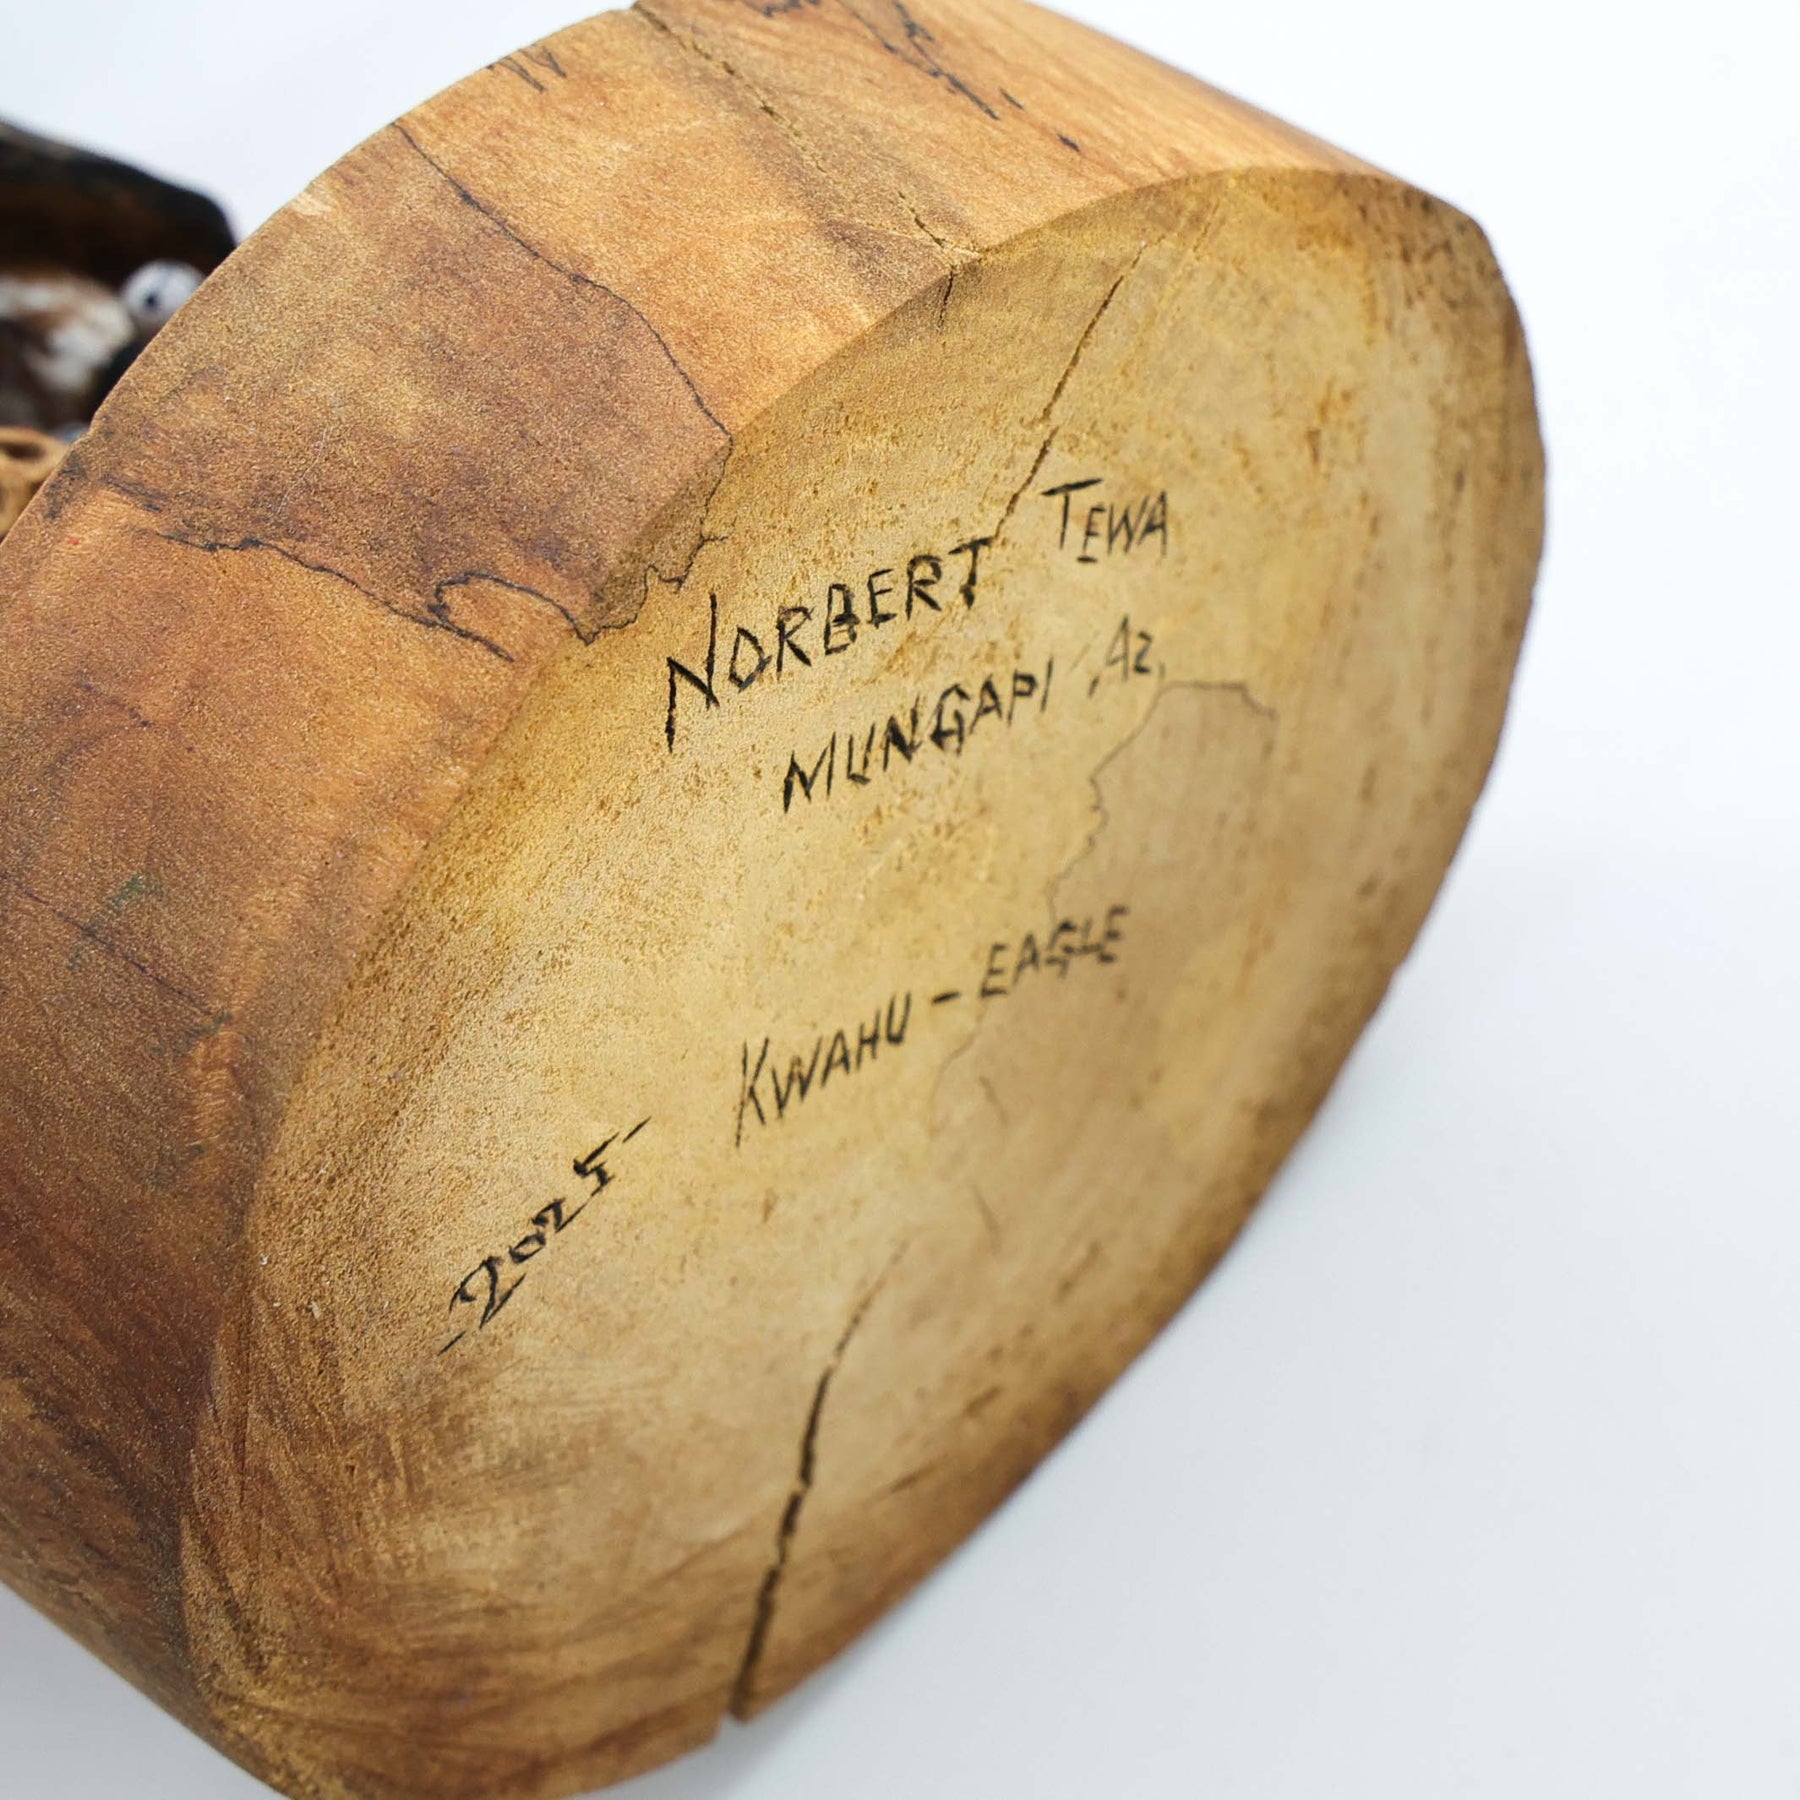 NORBERT TEWA
MUNGAPI, Az.
KWAHU - EAGLE
-2025-